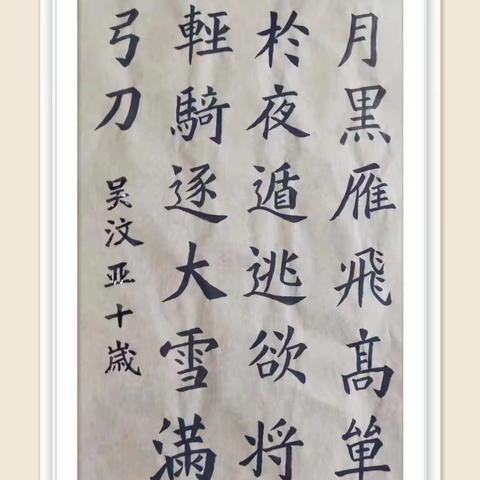 月黑雁飛髙單
於夜遁逃欲将
輕騎逐大雪滿
弓刀
吴汶亚十歲